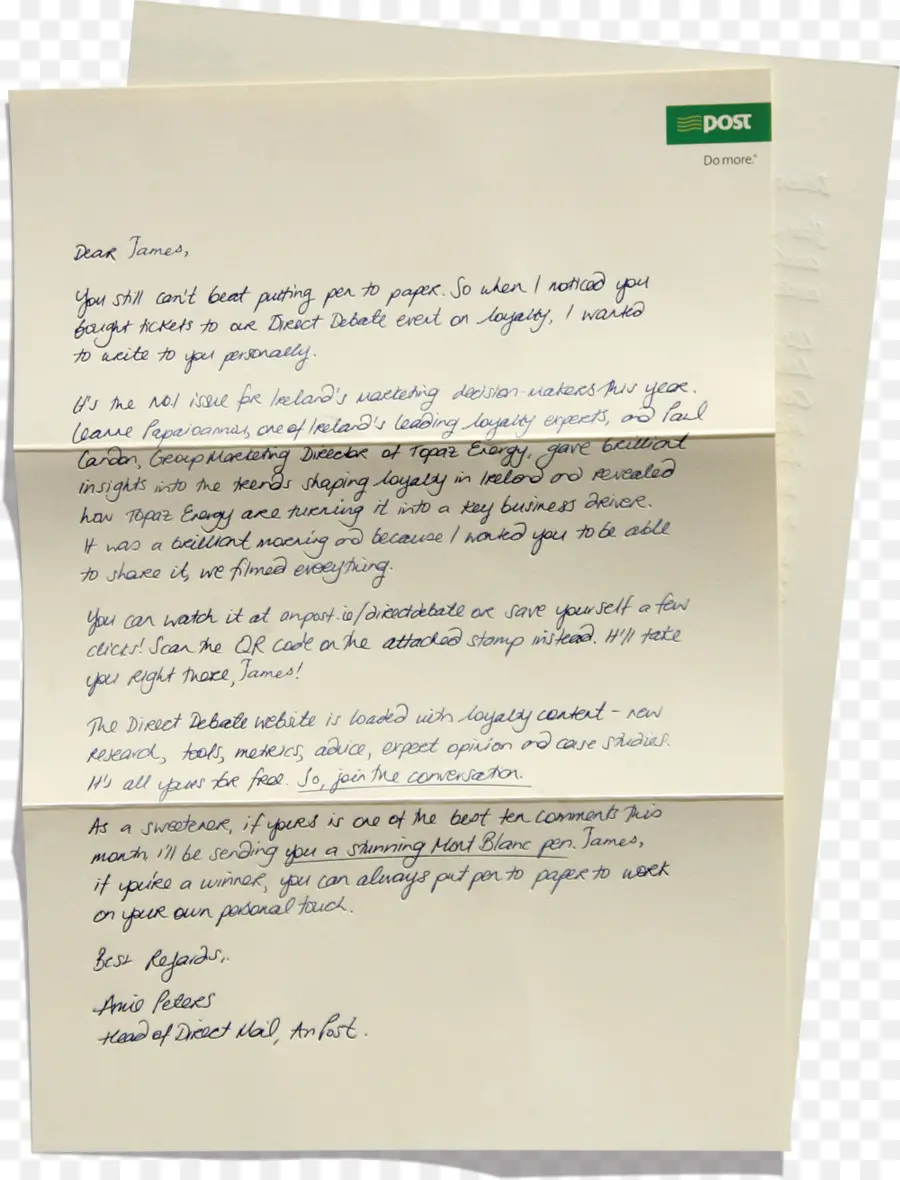 post
Do more.®
Dear James,
You still can't beat putting pen to paper. So when I noticed you
bought tickets to our Direct Debate event on loyalty, I wanted
to write to you personally.
It's the No.1 issue for Ireland's marketing decision-makers this year.
Leanne Papaioannou, one of Ireland's leading loyalty experts, and Paul
Candon, Group Marketing Director of Topaz Energy, gave brilliant
insights into the trends shaping loyalty in Ireland and revealed
how Topaz Energy are turning it into a key business driver.
It was a brilliant morning and because I wanted you to be able
to share it, we filmed everything.
You can watch it at anpost.ie/directdebate or save yourself a few
clicks! Scan the QR code on the attached stamp instead. It'll take
you right there, James!
The Direct Debate website is loaded with loyalty content - new
research, tools, metrics, advice, expert opinion and case studies.
It's all yours for free. So, join the conversation.
As a sweetener, if yours is one of the best ten comments this
month I'll be sending you a stunning Mont Blanc pen. James,
if you're a winner, you can always put pen to paper to work
on your own personal touch.
Best Regards,
Peters
Head of Direct Mail, An Post.